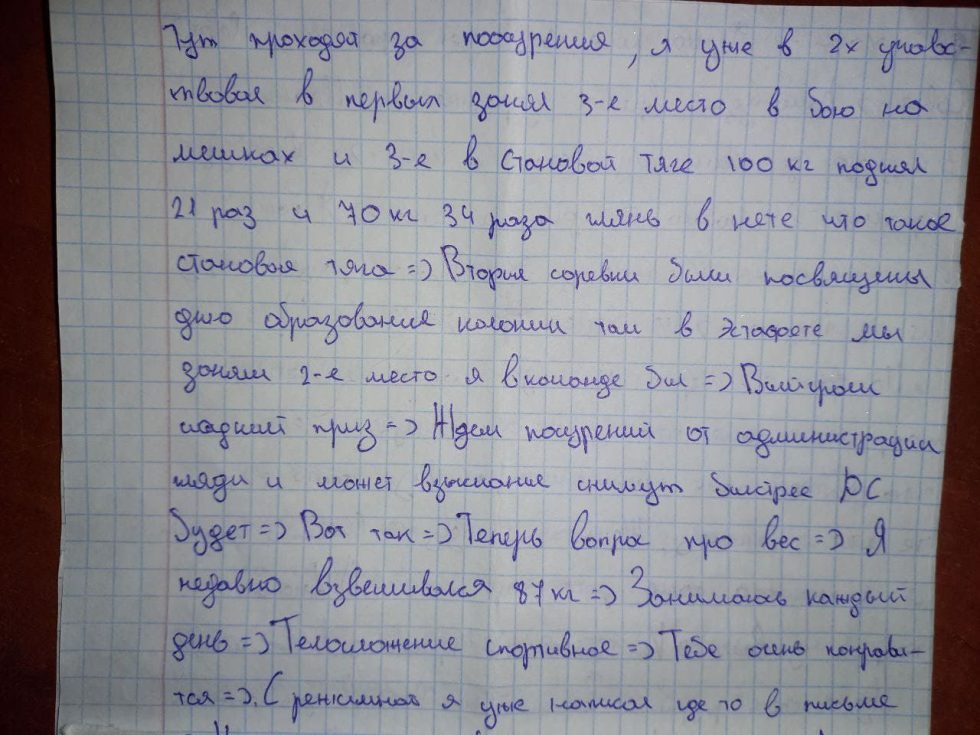 Тут проходят за поощрения, я уже в 2х учавс-
твовал в первых занял 3-е место в бою на
мешках и 3-е в Становой тяге 100 кг поднял
21 раз и 70 кг 34 раза глянь в нете что такое
становая тяга => Вторые соревы были посвящены
дню образования колонии там в Эстафете мы
заняли 2-е место я в команде был => Выиграли
сладкий приз => Ждем поощрений от администрации
гляди и может взыскание снимут быстрее ДС
будет => Вот так => Теперь вопрос про вес => Я
недавно взвешивался 87 кг => Занимаюсь каждый
день => Телосложение спортивное => Тебе очень понрави-
тся => С режимкой я уже написал где то в письме